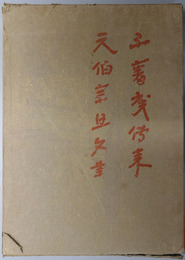 不審菴伝来
元伯宗旦文書